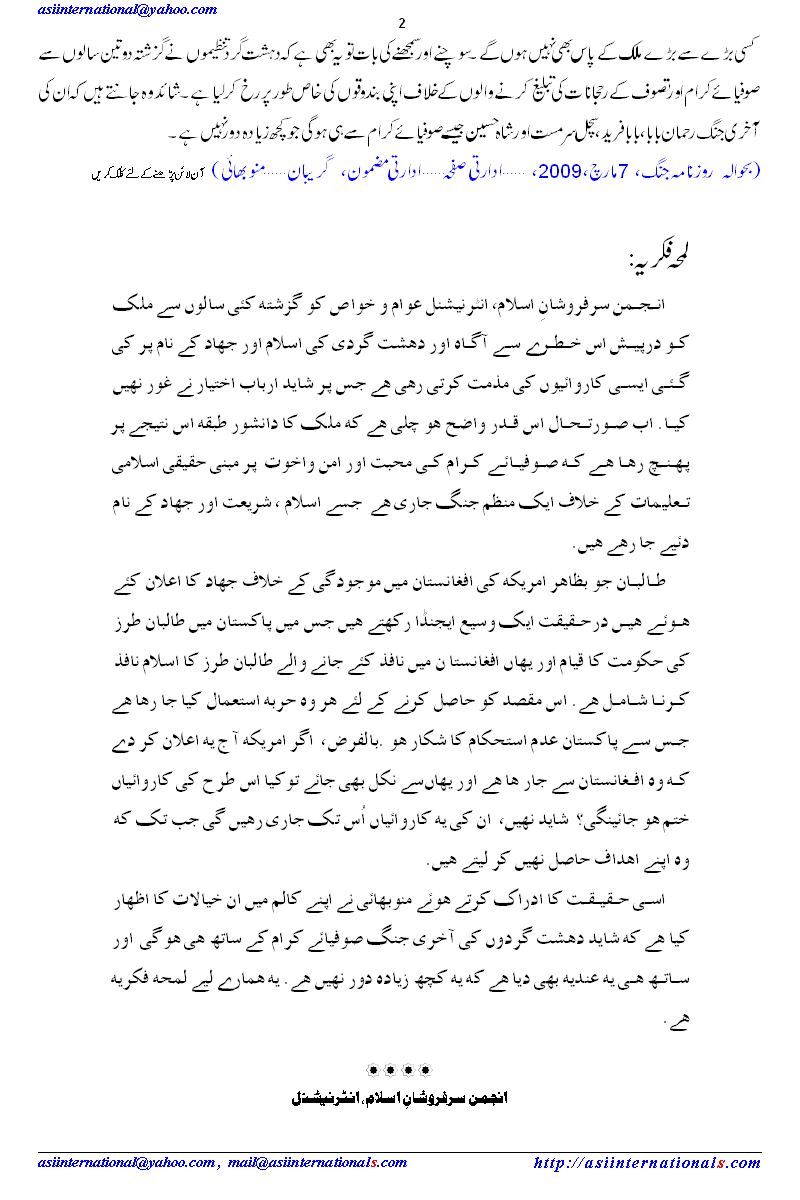 asiinternational@yahoo.com
2
کسی بڑے سے بڑے ملک کے پاس بھی نہیں ہوں گے ۔سوچنے اور سمجھنے کی بات تو یہ بھی ہے کہ دہشت گرد تنظیموں نے گزشتہ دو تین سالوں سے
صوفیائے کرام اور تصوف کے رجحانات کی تبلیغ کرنے والوں کے خلاف اپنی بندوقوں کی خاص طور پر رخ کرلیا ہے ۔ شائد وہ جانتے ہیں کہ ان کی
آخری جنگ رحمان بابا، بابا فرید، سچل سرمست اور شاہ حسین جیسے صوفیائے کرام سے ہی ہوگی جو کچھ زیادہ دور نہیں ہے ۔
(بحوالہ روزنامہ جنگ، 7 مارچ،2009، ......ادارتی صفحہ.....ادارتی مضمون، گریبان......منو بھائی) آن لائن پڑھنے کے لئے کلک کریں
لمحہ فکریہ:
انجمن سرفروشانِ اسلام، انٹرنیشنل عوام و خواص کو گزشتہ کئی سالوں سے ملک
کو درپیش اس خطرے سے آگاہ اور دھشت گردی کی اسلام اور جھاد کے نام پر کی
گئی ایسی کاروائیوں کی مذمت کرتی رھی ھے جس پر شاید ارباب اختیار نے غور نھیں
کیا۔ اب صورتحال اس قدر واضح ھو چلی ھے کہ ملک کا دانشور طبقہ اس نتیجے پر
پھنچ رھا ھے کہ صوفیائے کرام کی محبت اور امن واخوت پر مبنی حقیقی اسلامی
تعلیمات کے خلاف ایک منظم جنگ جاری ھے جسے اسلام ، شریعت اور جھاد کے نام
دئیے جا رھے ھیں۔
طالبان جو بظاھر امریکہ کی افغانستان میں موجودگی کے خلاف جھاد کا اعلان کئے
ھوئے ھیں درحقیقت ایک وسیع ایجنڈا رکھتے ھیں جس میں پاکستان میں طالبان طرز
کی حکومت کا قیام اور یھاں افغانستا ن میں نافذ کئے جانے والے طالبان طرز کا اسلام نافذ
کرنا شامل ھے۔ اس مقصد کو حاصل کرنے کے لئے ھر وہ حربہ استعمال کیا جا رھا ھے
جس سے پاکستان عدم استحکام کا شکار ھو ۔بالفرض، اگر امریکہ آج یہ اعلان کر دے
کہ وہ افغانستان سے جار ھا ھے اور یھاں سے نکل بھی جائے تو کیا اس طرح کی کاروائیاں
ختم ھو جائینگی؟ شاید نھیں، ان کی یہ کاروائیاں اُس تک جاری رھیں گی جب تک کہ
وہ اپنے اھداف حاصل نھیں کر لیتے ھیں۔
اسی حقیقت کا ادراک کرتے ھوئے منوبھائی نے اپنے کالم میں ان خیالات کا اظھار
کیا ھے کہ شاید دھشت گردوں کی آخری جنگ صوفیائے کرام کے ساتھ ھی ھوگی اور
ساتھ ھی یہ عندیہ بھی دیا ھے کہ یہ کچھ زیادہ دور نھیں ھے۔ یہ ھمارے لیے لمحہ فکریہ
ھے۔
انجمن سرفروشانِ اسلام، انٹرنیشنل
asiinternational@yahoo.com , mail@asiinternationals.com
http://asiinternationals.com